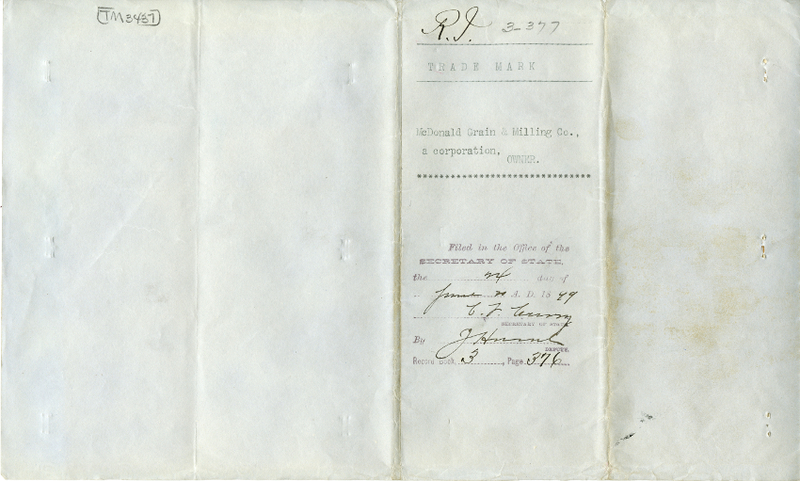 TM3437
R.I. 3-377
TRADE MARK
McDonald Grain & Milling Co.,
a corporation,
OWNER.
Filed in the Office of the
SECRETARY OF STATE,
the 24 day of
A. D. 1899
C. F. Curry
SECRETARY OF STATE
By
DEPUTY.
Record Book 3, Page 376